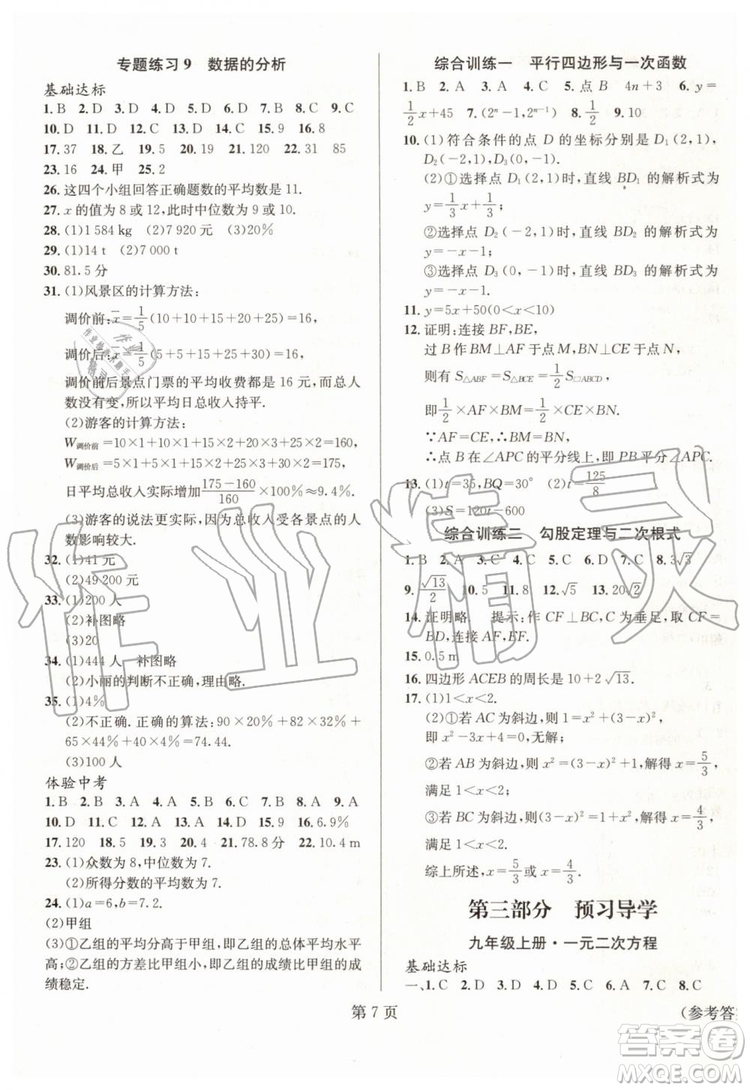 专题练习9　数据的分析
基础达标
1. B　2. D　3. D　4. B　5. D　6. B　7. B　8. C　9. C
10. D　11. D　12. D　13. D　14. 9.5　15. 9　16. 8
17. 37　18. 乙　19. 5　20. 22.5　21. 32　22. 31　85
23. 16　24. 甲　25. 2
26. 这四个小组回答正确题数的平均数是 11.
27. x 的值为 8 或 12, 此时中位数为 9.
28. (1)1 584 kg　(2)7 920 元　(3)20%
29. (1)14 t　(2)7 000 t
30. 81.5 分
31. (1)风景区的计算方法:
调价前: x̄=1/5(10+10+15+20+25)=16,
调价后: x̄=1/5(5+5+15+25+30)=16,
调价前后景点门票的平均收费都是 16 元, 而且总人
数不变, 因此平均日总收入持平.
(2)游客的计算方法:
W调价前=10×1+10×1+15×2+20×3+25×2=160,
W调价后=5×1+5×1+15×2+25×3+30×2=175,
日平均总收入实际增加 (175-160)/160×100%≈9.4%.
(3)游客的说法更实际, 因为总收入与各景点的人数
影响较大.
32. (1)41元
(2)49 200 元
33. (1)200 人
(2)补图略
(3)20
34. (1)444 人　补图略
(2)小丽的判断不正确, 理由略.
35. (1)4%
(2)不正确. 正确的算法: 90×20%+82×32%+
65×44%+40×4%
(3)100 人
体验中考
1. B　2. A　3. D　4. C　5. B　6. D　7. B　8. B　9. B
10. D　11. D　12. D　13. D　14. 8　15. 9　16. 6.9%
17. 120　18. 15　19. 2　20. 88.5 分　21. 2　22. 10.4 m
23. (1)众数为 7, 中位数为 7.
(2)所得分数的平均数为 7.
24. (1)a=6, b=7.2.
(2)甲组
(3)①乙组的平均分高于甲组, 即乙组的总体平均水平
高;②乙组的方差比甲组小, 即乙组的成绩比甲组的成
绩稳定.
综合训练一　平行四边形与一次函数
1. B　2. A　3. C　4. C　5. 点 B　4n-3　6. y=
1/2x+45　7. (2ⁿ-1, 2ⁿ⁻¹)　8. 1/2　9. 10
10. (1)符合条件的点 D 的坐标分别是 D₁(2, 1),
D₂(-2, 1), D₃(0, -1).
(2)①选择点 D₁(2, 1)时, 直线 BD₁ 的解析式为
y=1/3x+1/3;
②选择点 D₂(-2, 1)时, 直线 BD₂ 的解析式为
y=-x-1;
③选择点 D₃(0, -1)时, 直线 BD₃ 的解析式为
y=-x-1.
11. y=5x+50(0<x<10)
12. 证明: 连接 BF, BE,
过 B 作 BM⊥AF 于 M, BN⊥EC 于 N.
则有 S△ABF=S△BCE=1/2S▱ABCD,
即 1/2×AF×BM=1/2×CE×BN.
∵AF=CE, ∴BM=BN,
∴点 B 在∠APC 的平分线上, 即 PB 平分∠APC.
13. (1)t=35, BQ=30°　(2)t=125/8
(3)S=120t-600
综合训练二　勾股定理与二次根式
1. B　2. A　3. C　4. C　5. D　6. C　7. B　8. 3√3
9. √13/2　10. 4　11. 5　12. √5　13. 20√2
14. 证明略　提示: 作 CF⊥BC, C 为垂足, 取 CF=
BD, 连接 AF, EF.
15. 0.5 m
16. 四边形 ACEB 的周长是 10+2√13.
17. (1)1<x<2.
(2)①若 AC 为斜边, 则 1=x²+(3-x)²,
即 x²-3x+4=0, 无解;
②若 AB 为斜边, 则 x²=(3-x)²+1, 解得 x=5/3,
满足 1<x<2;
③若 BC 为斜边, 则 (3-x)²=1+x², 解得 x=4/3,
满足 1<x<2.
综上所述, x=5/3或 x=4/3.
第三部分　预习导学
九年级上册·一元二次方程
基础达标
一、1. C　2. D　3. A　4. D　5. D　6. B　7. C　8. C
第 7 页
(参考答
作业精灵
答案圈
MXQE.COM